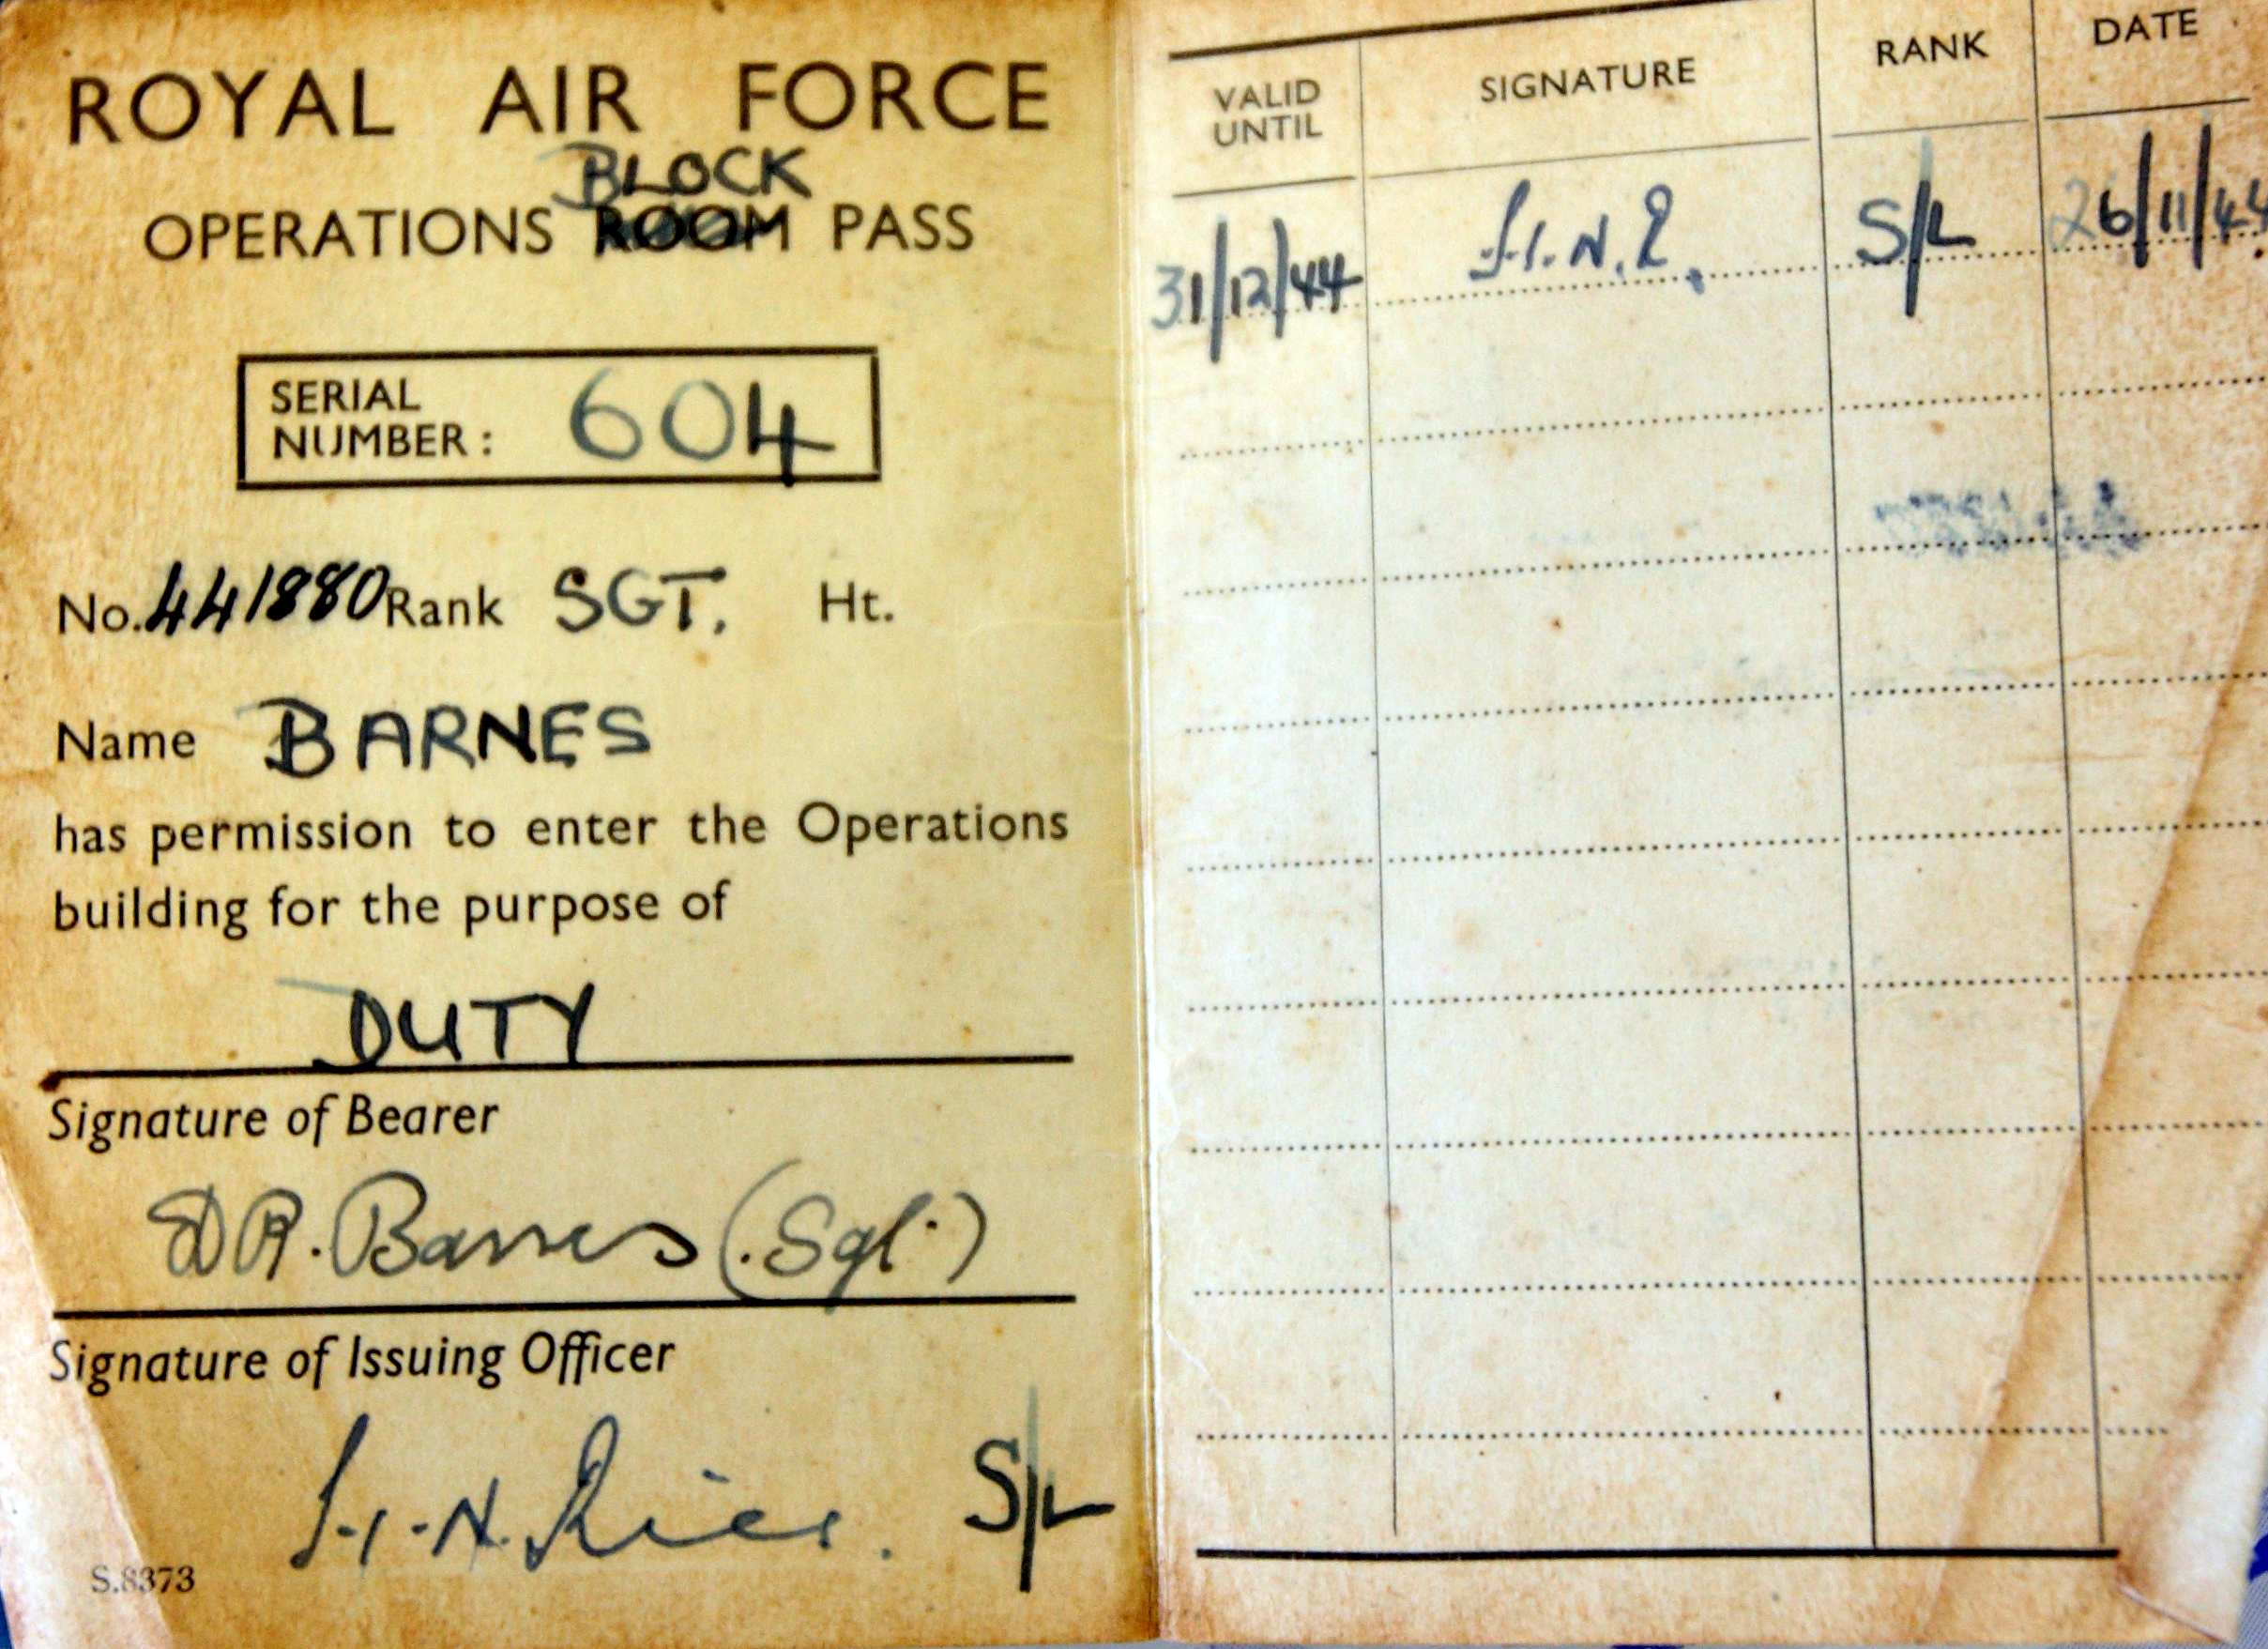 ROYAL AIR FORCE
BLOCK
OPERATIONS ROOM PASS
SERIAL
NUMBER: 604
No. 441880 Rank SGT. Ht.
Name BARNES
has permission to enter the Operations
building for the purpose of
DUTY
Signature of Bearer
D R. Barnes (Sgt.)
Signature of Issuing Officer
S/L
S.8373
VALID UNTIL SIGNATURE RANK DATE
31/12/44 S/L 26/11/44